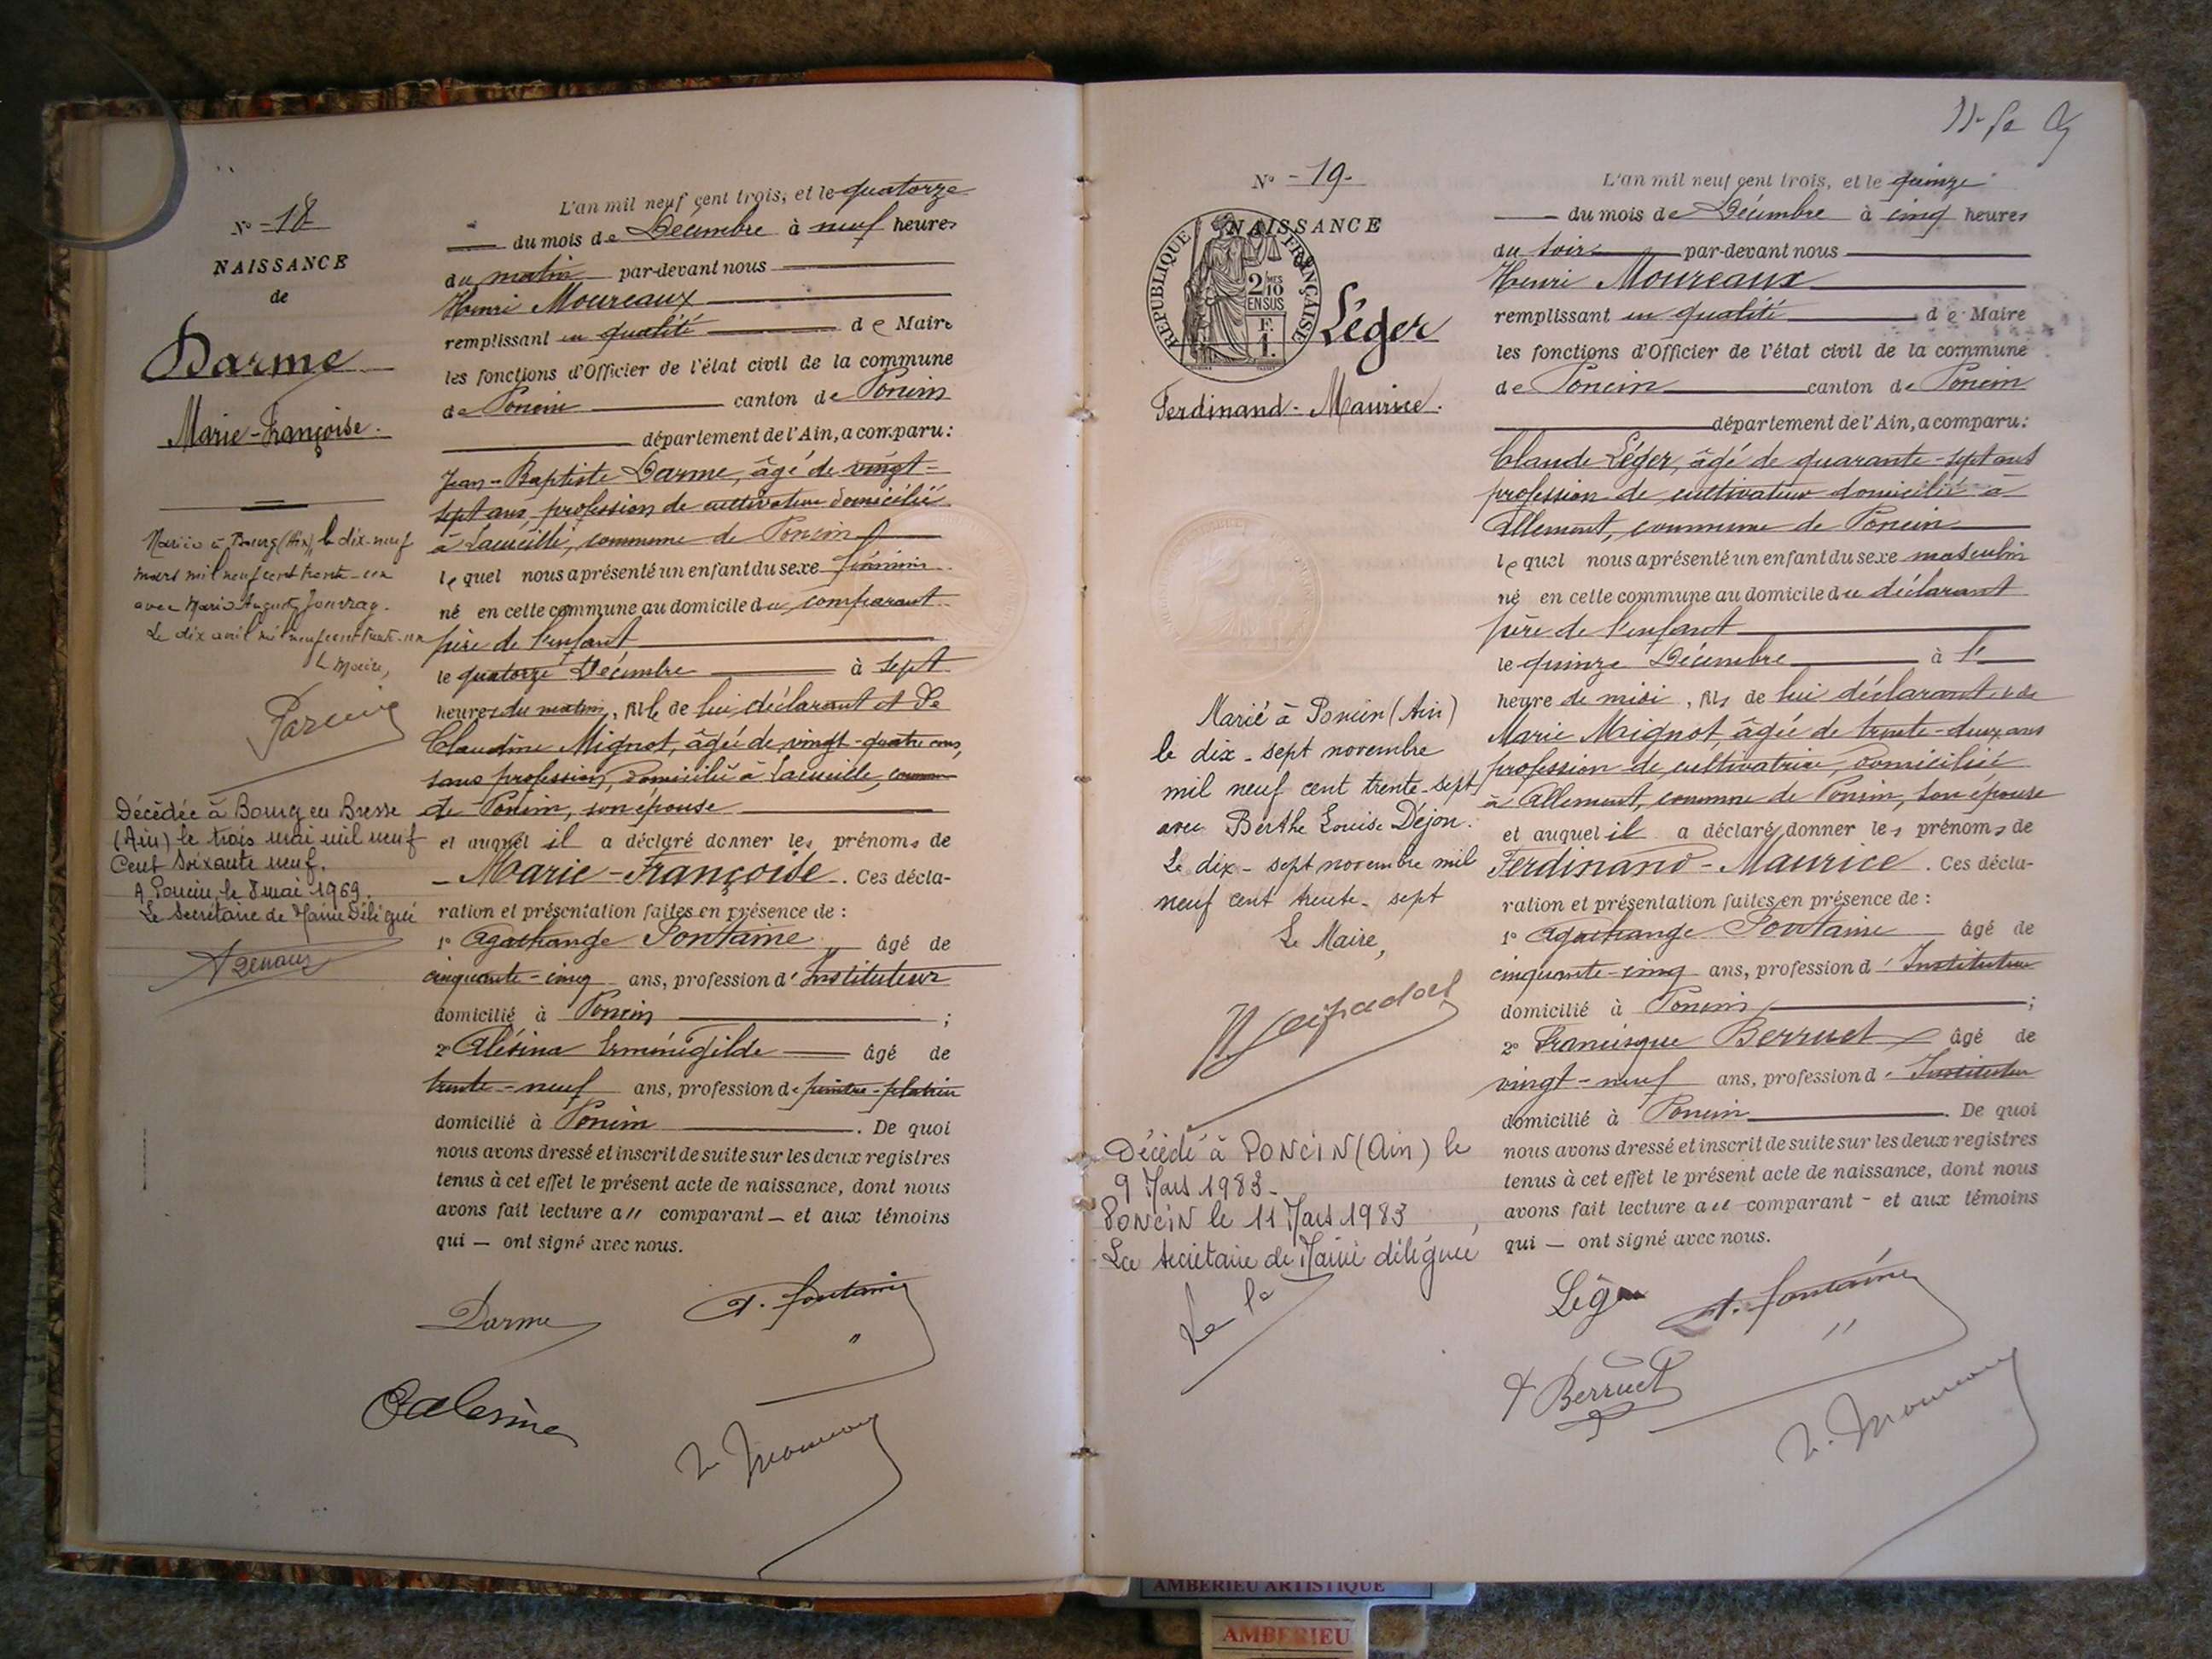 N° - 18
NAISSANCE
de
Darme
Marie-Françoise.
Marié à Bourg (Ain), le dix-neuf
mars mil neuf cent trente-un
avec Marie Auguste
Le dix avril mil neuf cent trente-un
Le Maire,
Décédée à Bourg en Bresse
(Ain) le trois mai mil neuf
Cent Soixante neuf.
A Poncin, le 8 mai 1969.
Le Secrétaire de Mairie Délégué
L'an mil neuf cent trois, et le quatorze
du mois de Décembre à neuf heures
du matin par-devant nous
Henri Moureaux
remplissant en qualité de Maire
les fonctions d'Officier de l'état civil de la commune
de Poncin canton de Poncin
département de l'Ain, a comparu :
Jean-Baptiste Darme, âgé de vingt-
sept ans profession de cultivateur domicilié
à Lacueille, commune de Poncin
lequel nous a présenté un enfant du sexe féminin
né en cette commune au domicile du comparant
père de l'enfant
le quatorze Décembre à sept
heures du matin, fille de lui déclarant et de
Claudine Mignot, âgée de vingt-quatre ans,
sans profession, domiciliée à Lacueille, commune
de Poncin, son épouse
et auquel il a déclaré donner les prénoms de
- Marie-Françoise. Ces décla-
ration et présentation faites en présence de :
1° Agathange Fontaine âgé de
cinquante-cinq ans, profession d'Instituteur
domicilié à Poncin ;
2° Alésina Erménégilde âgé de
trente-neuf ans, profession de peintre-plâtrier
domicilié à Poncin. De quoi
nous avons dressé et inscrit de suite sur les deux registres
tenus à cet effet le présent acte de naissance, dont nous
avons fait lecture au comparant - et aux témoins
qui - ont signé avec nous.
Darme
A. Fontaine
N° - 19 -
NAISSANCE
de
RÉPUBLIQUE FRANÇAISE
2/10 MES
EN SUS
1 F.
Léger
Ferdinand-Maurice.
Marié à Poncin (Ain)
le dix-sept novembre
mil neuf cent trente-sept
avec Berthe Louise Déjon.
Le dix-sept novembre mil
neuf cent trente-sept
Le Maire,
Décédé à PONCIN (Ain) le
9 Mars 1983 -
PONCIN le 11 Mars 1983
La secrétaire de Mairie déléguée
L'an mil neuf cent trois, et le quinze
du mois de Décembre à cinq heures
du soir par-devant nous
Henri Moureaux
remplissant en qualité de Maire
les fonctions d'Officier de l'état civil de la commune
de Poncin canton de Poncin
département de l'Ain, a comparu :
Claude Léger, âgé de quarante-sept ans
profession de cultivateur domicilié à
Allement, commune de Poncin
lequel nous a présenté un enfant du sexe masculin
né en cette commune au domicile du déclarant
père de l'enfant
le quinze Décembre à 1
heure de midi, fils de lui déclarant et de
Marie Mignot, âgée de trente-deux ans
profession de cultivatrice, domiciliée
à Allement, commune de Poncin, son épouse
et auquel il a déclaré donner les prénoms de
Ferdinand-Maurice. Ces décla-
ration et présentation faites en présence de :
1° Agathange Fontaine âgé de
cinquante-cinq ans, profession d'Instituteur
domicilié à Poncin ;
2° Francisque Berruet âgé de
vingt-neuf ans, profession d'Instituteur
domicilié à Poncin. De quoi
nous avons dressé et inscrit de suite sur les deux registres
tenus à cet effet le présent acte de naissance, dont nous
avons fait lecture au comparant - et aux témoins
qui - ont signé avec nous.
Léger
A. Fontaine
F Berruet
AMBERIEU ARTISTIQUE
AMBERIEU